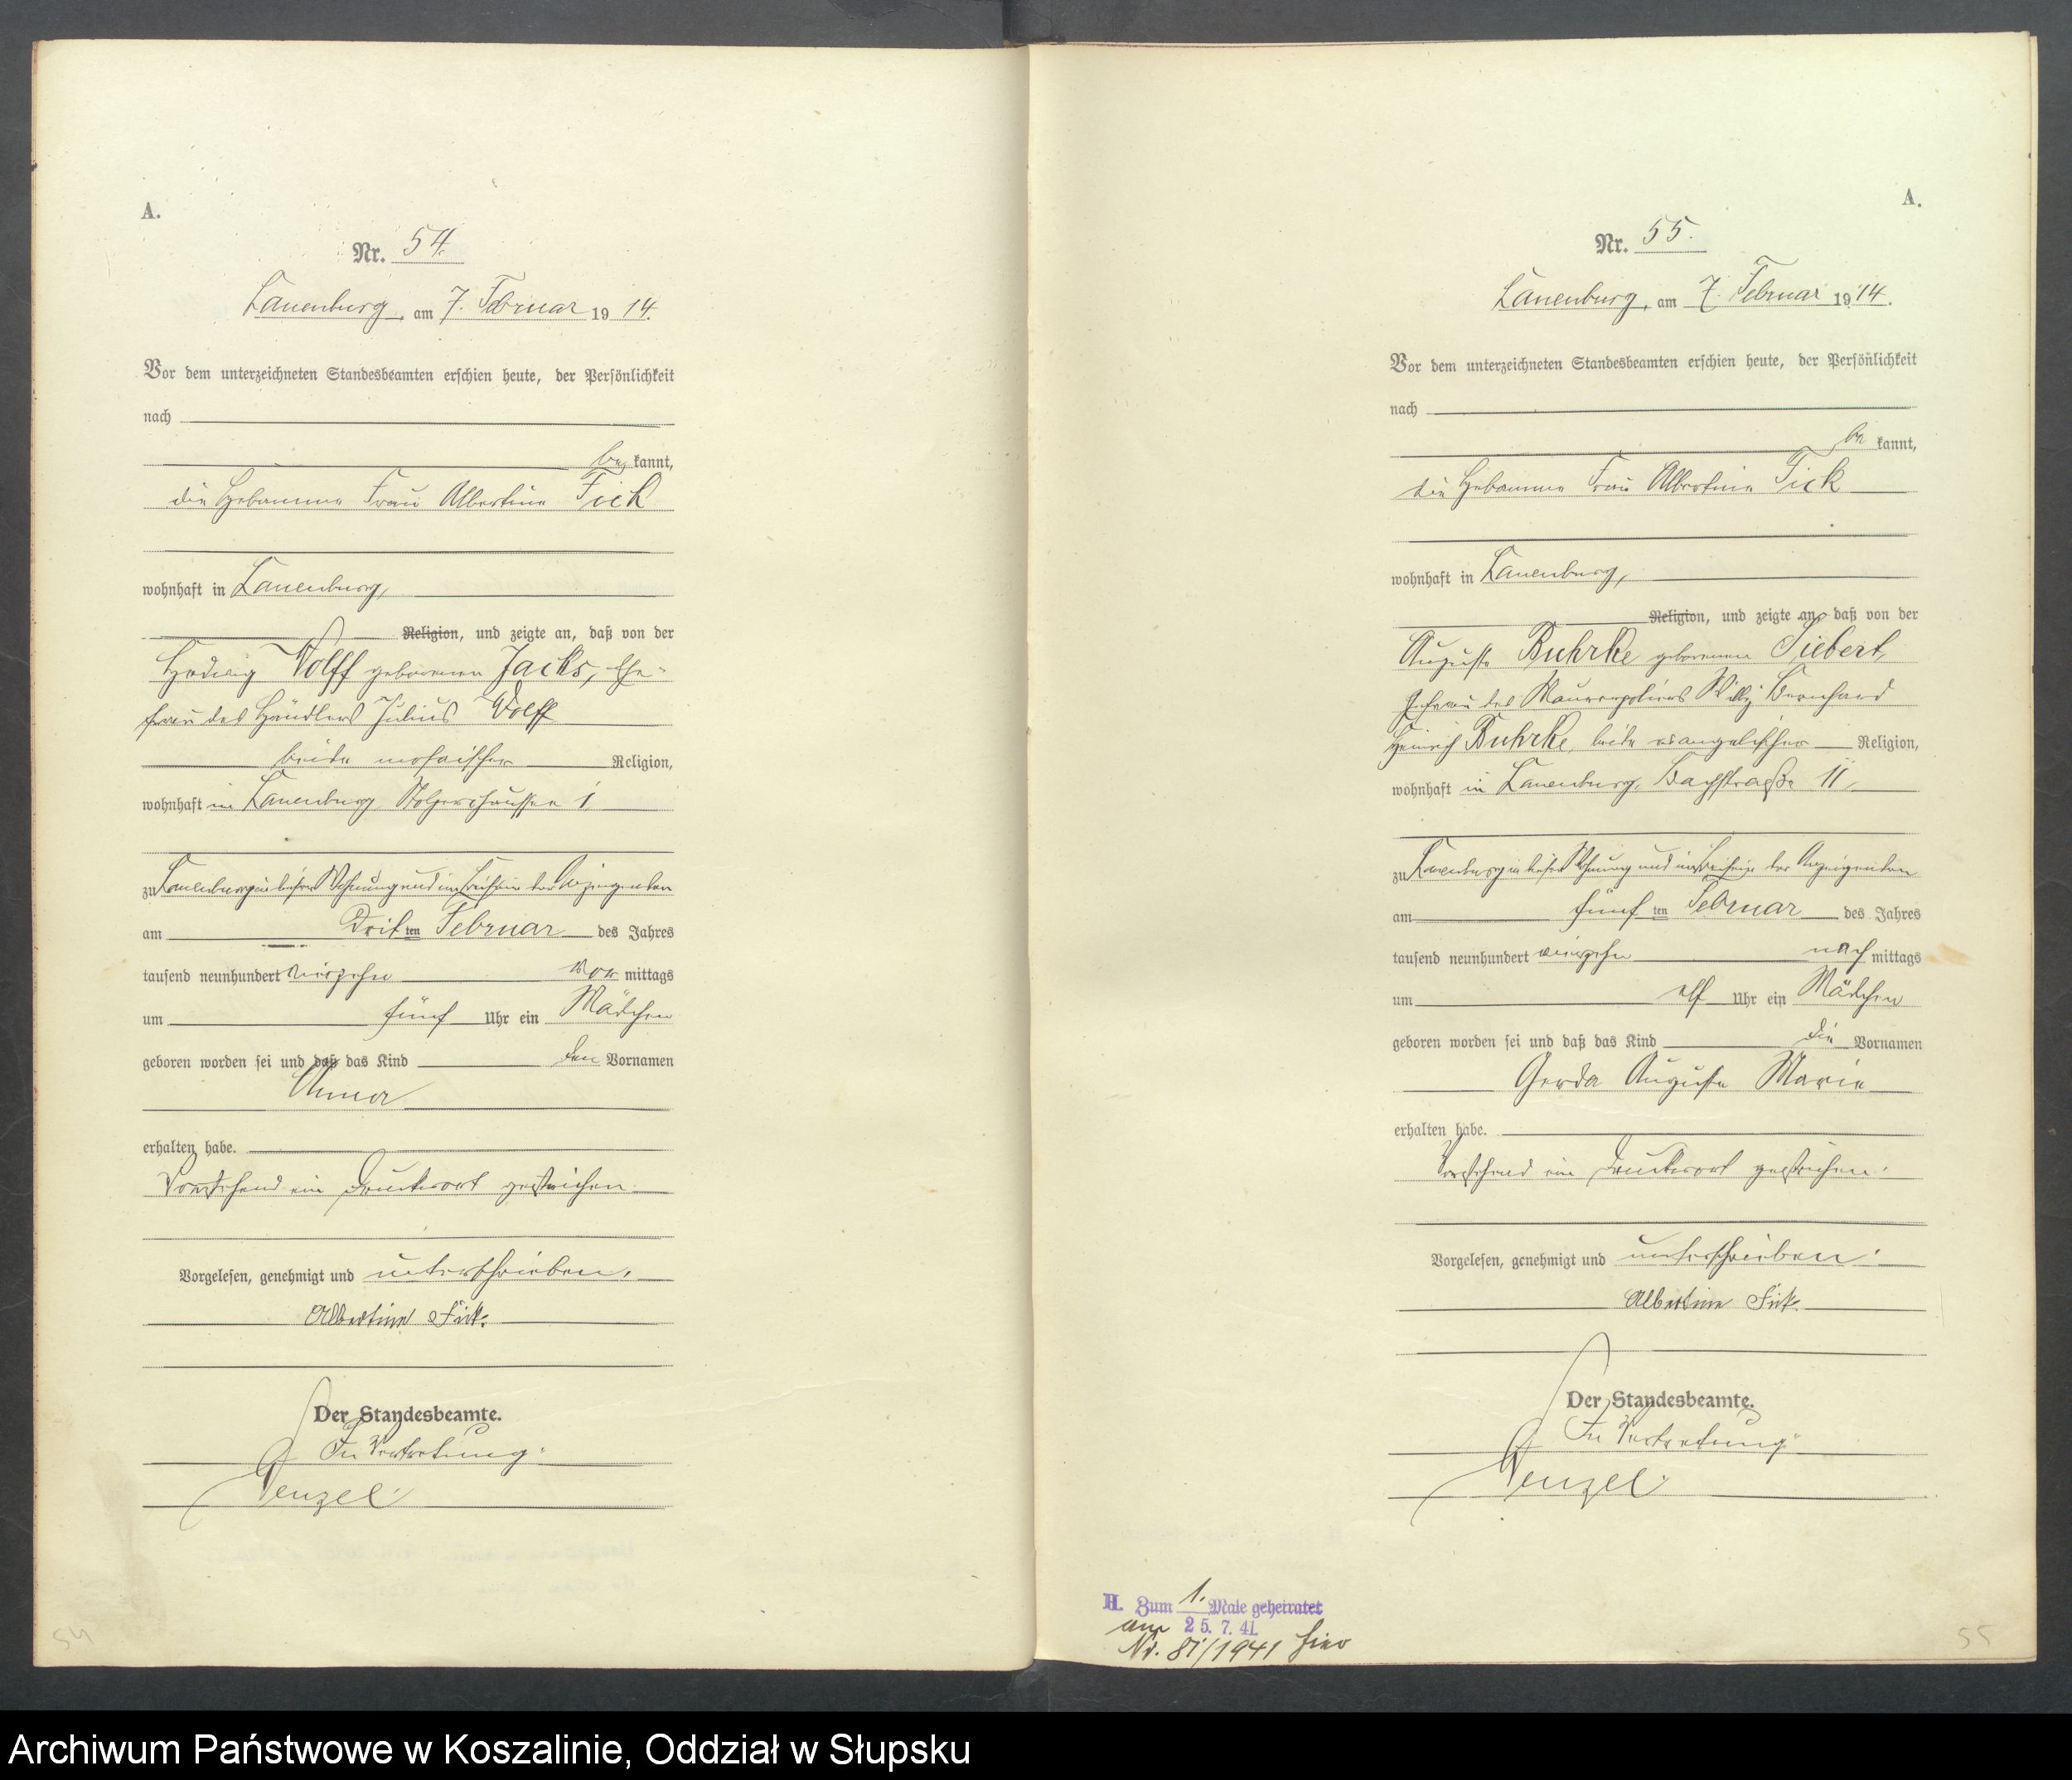 A.
Nr. 54.
Lauenburg, am 7. Februar 1914.
Vor dem unterzeichneten Standesbeamten erschien heute, der Persönlichkeit
nach
be kannt,
die Hebamme Frau Albertine Fick
wohnhaft in Lauenburg,
Religion, und zeigte an, daß von der
Hedwig Wolff geborenen Jacks, Ehe-
frau des Händlers Julius Wolff
beide mosaischer Religion,
wohnhaft in Lauenburg, 1,
zu Lauenburg in dieser Wohnung und im Beisein der Anzeigenden
am Dritten Februar des Jahres
tausend neunhundert vierzehn vor mittags
um fünf Uhr ein Mädchen
geboren worden sei und daß das Kind den Vornamen
Anna
erhalten habe.
Vorstehend ein Druckwort gestrichen.
Vorgelesen, genehmigt und unterschrieben.
Albertine Fick.
Der Standesbeamte.
In Vertretung.
Wenzel
54
A.
Nr. 55.
Lauenburg, am 7. Februar 1914.
Vor dem unterzeichneten Standesbeamten erschien heute, der Persönlichkeit
nach
be kannt,
die Hebamme Frau Albertine Fick
wohnhaft in Lauenburg,
Religion, und zeigte an, daß von der
Auguste Buhrke geborenen Siebert,
Ehefrau des Maurerpoliers Willy Bernhard
Heinrich Buhrke, beide evangelischer Religion,
wohnhaft in Lauenburg, Bachstraße 11,
zu Lauenburg in dieser Wohnung und im Beisein der Anzeigenden
am fünften Februar des Jahres
tausend neunhundert vierzehn nach mittags
um elf Uhr ein Mädchen
geboren worden sei und daß das Kind die Vornamen
Gerda Auguste Marie
erhalten habe.
Vorstehend ein Druckwort gestrichen.
Vorgelesen, genehmigt und unterschrieben.
Albertine Fick.
Der Standesbeamte.
In Vertretung
Wenzel
H. Zum 1. Male geheiratet
am 25. 7. 41
Nr. 81/1941 hier
55
Archiwum Państwowe w Koszalinie, Oddział w Słupsku